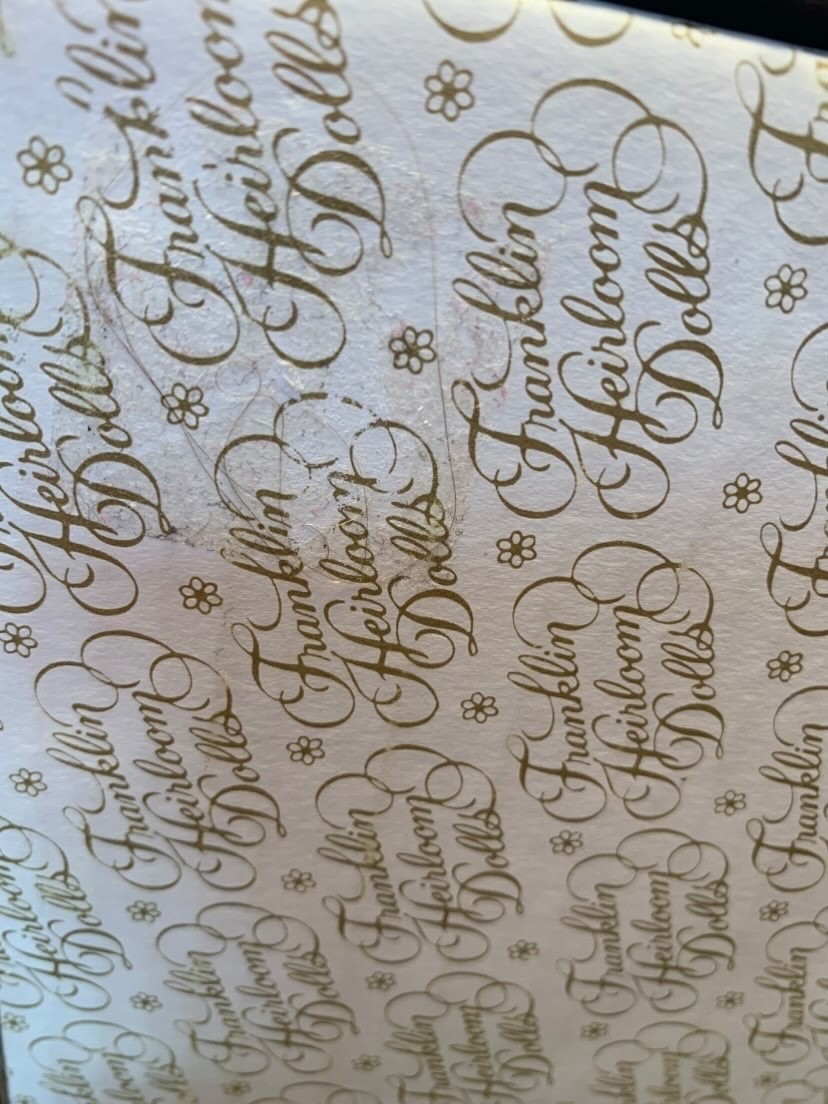 Franklin
Heirloom
Dolls
Franklin
Heirloom
Dolls
Heirloom
Dolls
Franklin
Heirloom
Dolls
Franklin
Heirloom
Dolls
Franklin
Heirloom
Dolls
Franklin
Heirloom
Dolls
Franklin
Heirloom
Dolls
Heirloom
Dolls
Franklin
Heirloom
Dolls
Franklin
Franklin
Heirloom
Dolls
Franklin
Franklin
Heirloom
Dolls